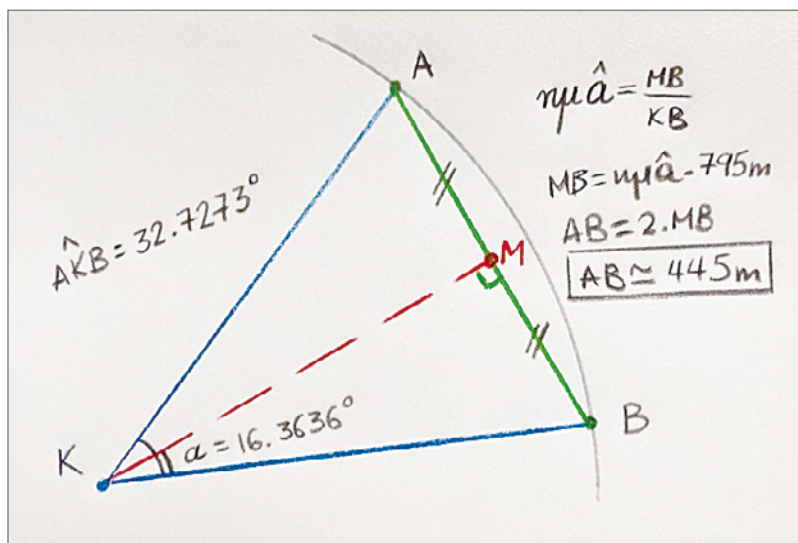 A
ημ â = MB/KB
MB = ημ â - 795m
AB = 2.MB
AB ≃ 445m
AK̂B = 32.7273°
M
K
α = 16.3636°
B